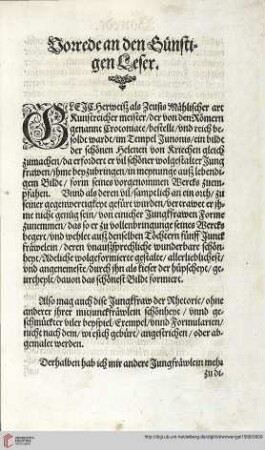 Vorrede an den Günsti-
gen Leser.
GLEICHerweiß als Zeusis Mählischer art
Kunstreicher meister / der von den Römern
genannt Crotomiate / bestellt / vnd reich be-
soldt wardt / im Tempel Junonis / ein bilde
der schönen Helenen von Kriechen gleich
zumachen / da erfordert er vil schöner wolgestalter Jung
frawen / ihme beyzubringen / in meynunge auß lebendi-
gem Bildt / form seines vorgenommen Wercks zuem-
pfahen. Vnnd als deren vil / sämptlich an ein orth / zu
seiner gegenwertigkeyt gefürt wurden / vertrawet er ih-
me nicht genüg sein / von einicher Jungkfrawen Forme
zunemmen / das so er zu volenbringunge seines Wercks
begert / vnd wehlet auß denselben Töchtern fünff Jungk
fräwlein / deren vnaußsprechliche wunderbare schön-
heyt / Adeliche wolgeformierte gestalte / allerlieblichst /
vnd angenemeste / durch ihn als kieser der hüpscheyt / ge-
urtheylt / dauon das schönest Bildt formiert.
Also mag auch dise Jungkfraw der Rhetoric / ohne
anderer ihrer mitjungkfräwlein schönheyt / vnnd ge-
schmückter viler beyspiel / Exempel / vnnd Formularien /
nicht nach dem / wie sich gebürt / angestrichen / oder ab-
gemalet werden.
Derhalben hab ich mir andere Jungkfräwlein mehr
zu di-